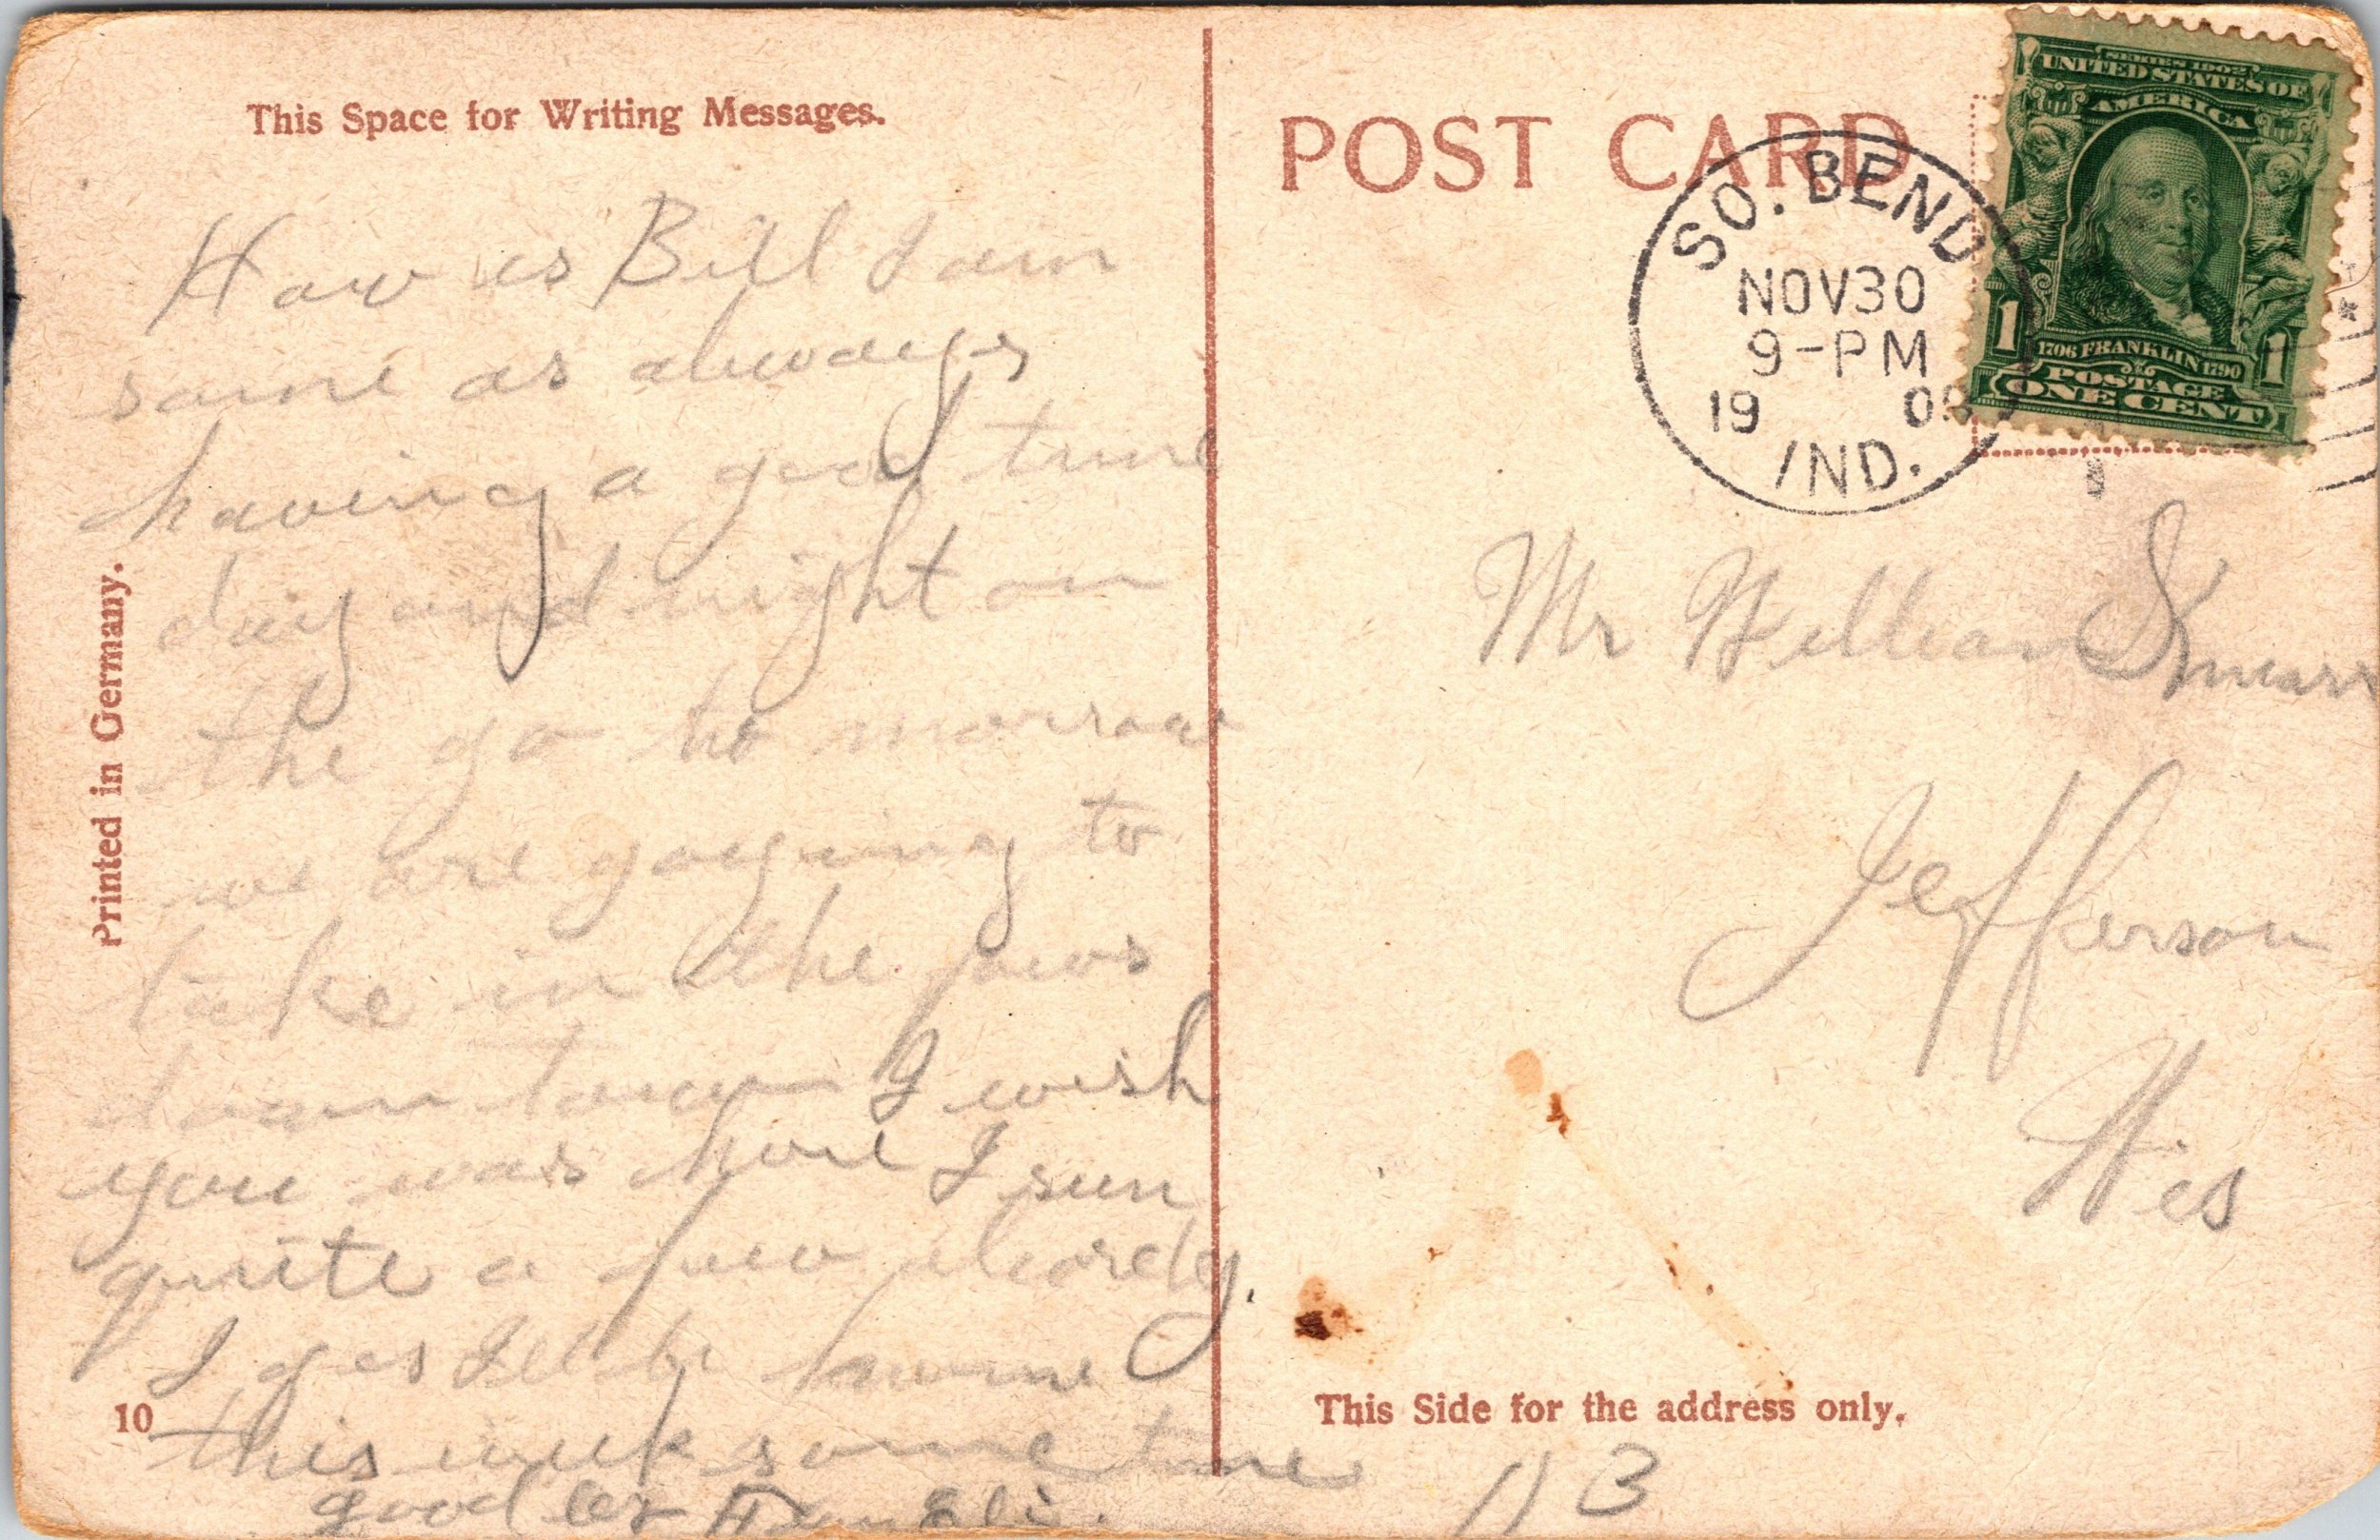 This Space for Writing Messages.
How is Bill I am
same as always
having a good time
day and night on
the go to morrow
we are goying to
take in the
down town I wish
you was here I sen
quite a few
I ges Ill be home
this week some time
good by
Printed in Germany.
10
POST CARD
SO. BEND
NOV30
9-PM
19 08
IND.
SERIES 1902
UNITED STATES OF
AMERICA
1706 FRANKLIN 1790
POSTAGE
1 ONE CENT 1
Mr William
Jefferson
Wis
This Side for the address only.
113